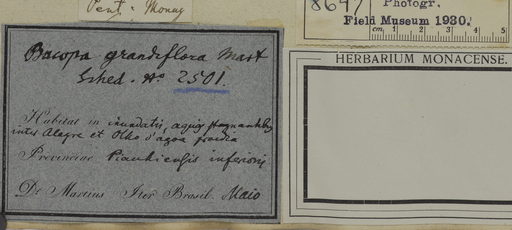 Pent. Monog
8697
Photogr.
Field Museum 1930.
cm 1 2 3 4 5
HERBARIUM MONACENSE.
Bacopa grandiflora Mart
Sched. No 2501.
Habitat in inundatis, aquis stagnantibus
inter Alagre et Olho d'agoa
Provinciae Piauhiensis inferioris
Dr Martius Iter Brasil. Maio